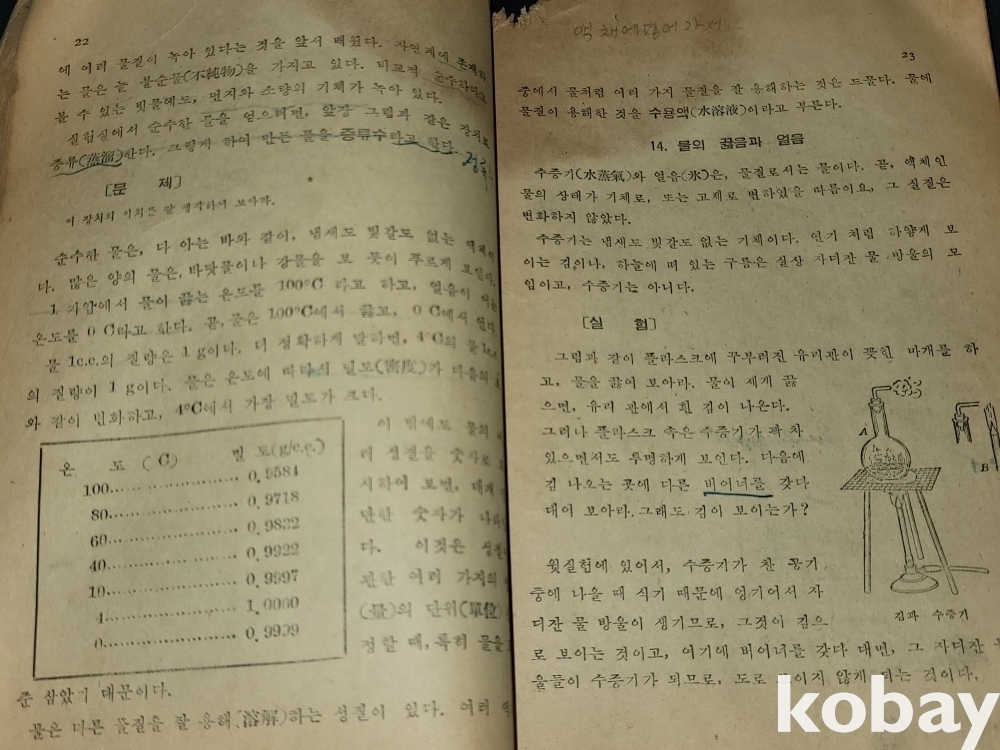 22
에 여러 물질이 녹아 있다는 것을 앞서 배웠다. 자연계에 존재하
는 물은 늘 불순물(不純物)을 가지고 있다. 비교적 순수하다고
볼 수 있는 빗물에도, 먼지와 소량의 기체가 녹아 있다.
실험실에서 순수한 물을 얻으려면, 앞장 그림과 같은 장치로
증류(蒸溜)한다. 그렇게 하여 만든 물을 증류수라고 한다.
[문 제]
이 장치의 이치를 잘 생각하여 보아라.
순수한 물은, 다 아는 바와 같이, 냄새도 빛갈도 없는 액체이
다. 많은 양의 물은, 바닷물이나 강물을 보 듯이 푸르게 보인다.
1 기압에서 물이 끓는 온도를 100°C 라고 하고, 얼음이 어는
온도를 0 C라고 한다. 곧, 물은 100°C에서 끓고, 0 C에서 언다.
물 1c.c.의 질량은 1 g이다. 더 정확하게 말하면, 4°C의 물 1c.c.
의 질량이 1 g이다. 물은 온도에 따라서 밀도(密度)가 다음의
와 같이 변화하고, 4°C에서 가장 밀도가 크다.
온 도 (C) 밀 도(g/c.c.)
100 0.9584
80 0.9718
60 0.9832
40 0.9922
10 0.9997
4 1.0000
0 0.9999
이 밖에도 물의
러 성질을 숫자로
시하여 보면, 대개
단한 숫자가 나
다. 이것은
관한 여러 가지의
(量)의 단위(單位)
정할 때, 특히 물을
준 삼았기 때문이다.
물은 다른 물질을 잘 용해(溶解)하는 성질이 있다. 여러 액
액체에열에가서
23
중에서 물처럼 여러 가지 물질을 잘 용해하는 것은 드물다. 물에
물질이 용해한 것을 수용액(水溶液)이라고 부른다.
14. 물의 끓음과 얼음
수증기(水蒸氣)와 얼음(氷)은, 물질로서는 물이다. 곧, 액체인
물의 상태가 기체로, 또는 고체로 변하였을 따름이요, 그 실질은
변화하지 않았다.
수증기는 냄새도 빛갈도 없는 기체이다. 연기 처럼 하얗게 보
이는 김이나, 하늘에 떠 있는 구름은 실상 자디잔 물 방울의 모
임이고, 수증기는 아니다.
[실 험]
그림과 같이 플라스크에 꾸부러진 유리관이 꽂힌 마개를 하
고, 물을 끓여 보아라. 물이 세게 끓
으면, 유리 관에서 흰 김이 나온다.
그러나 플라스크 속은 수증기가 꽉 차
있으면서도 투명하게 보인다. 다음에
김 나오는 곳에 다른 버어너를 갖다
대어 보아라. 그래도 김이 보이는가?
A
B
김과 수증기
윗실험에 있어서, 수증기가 찬 공기
중에 나올 때 식기 때문에 엉기어서 자
디잔 물 방울이 생기므로, 그것이 김으
로 보이는 것이고, 여기에 버어너를 갖다 대면, 그 자디잔
울들이 수증기가 되므로, 도로 보이지 않게 되는 것이다.
kobay